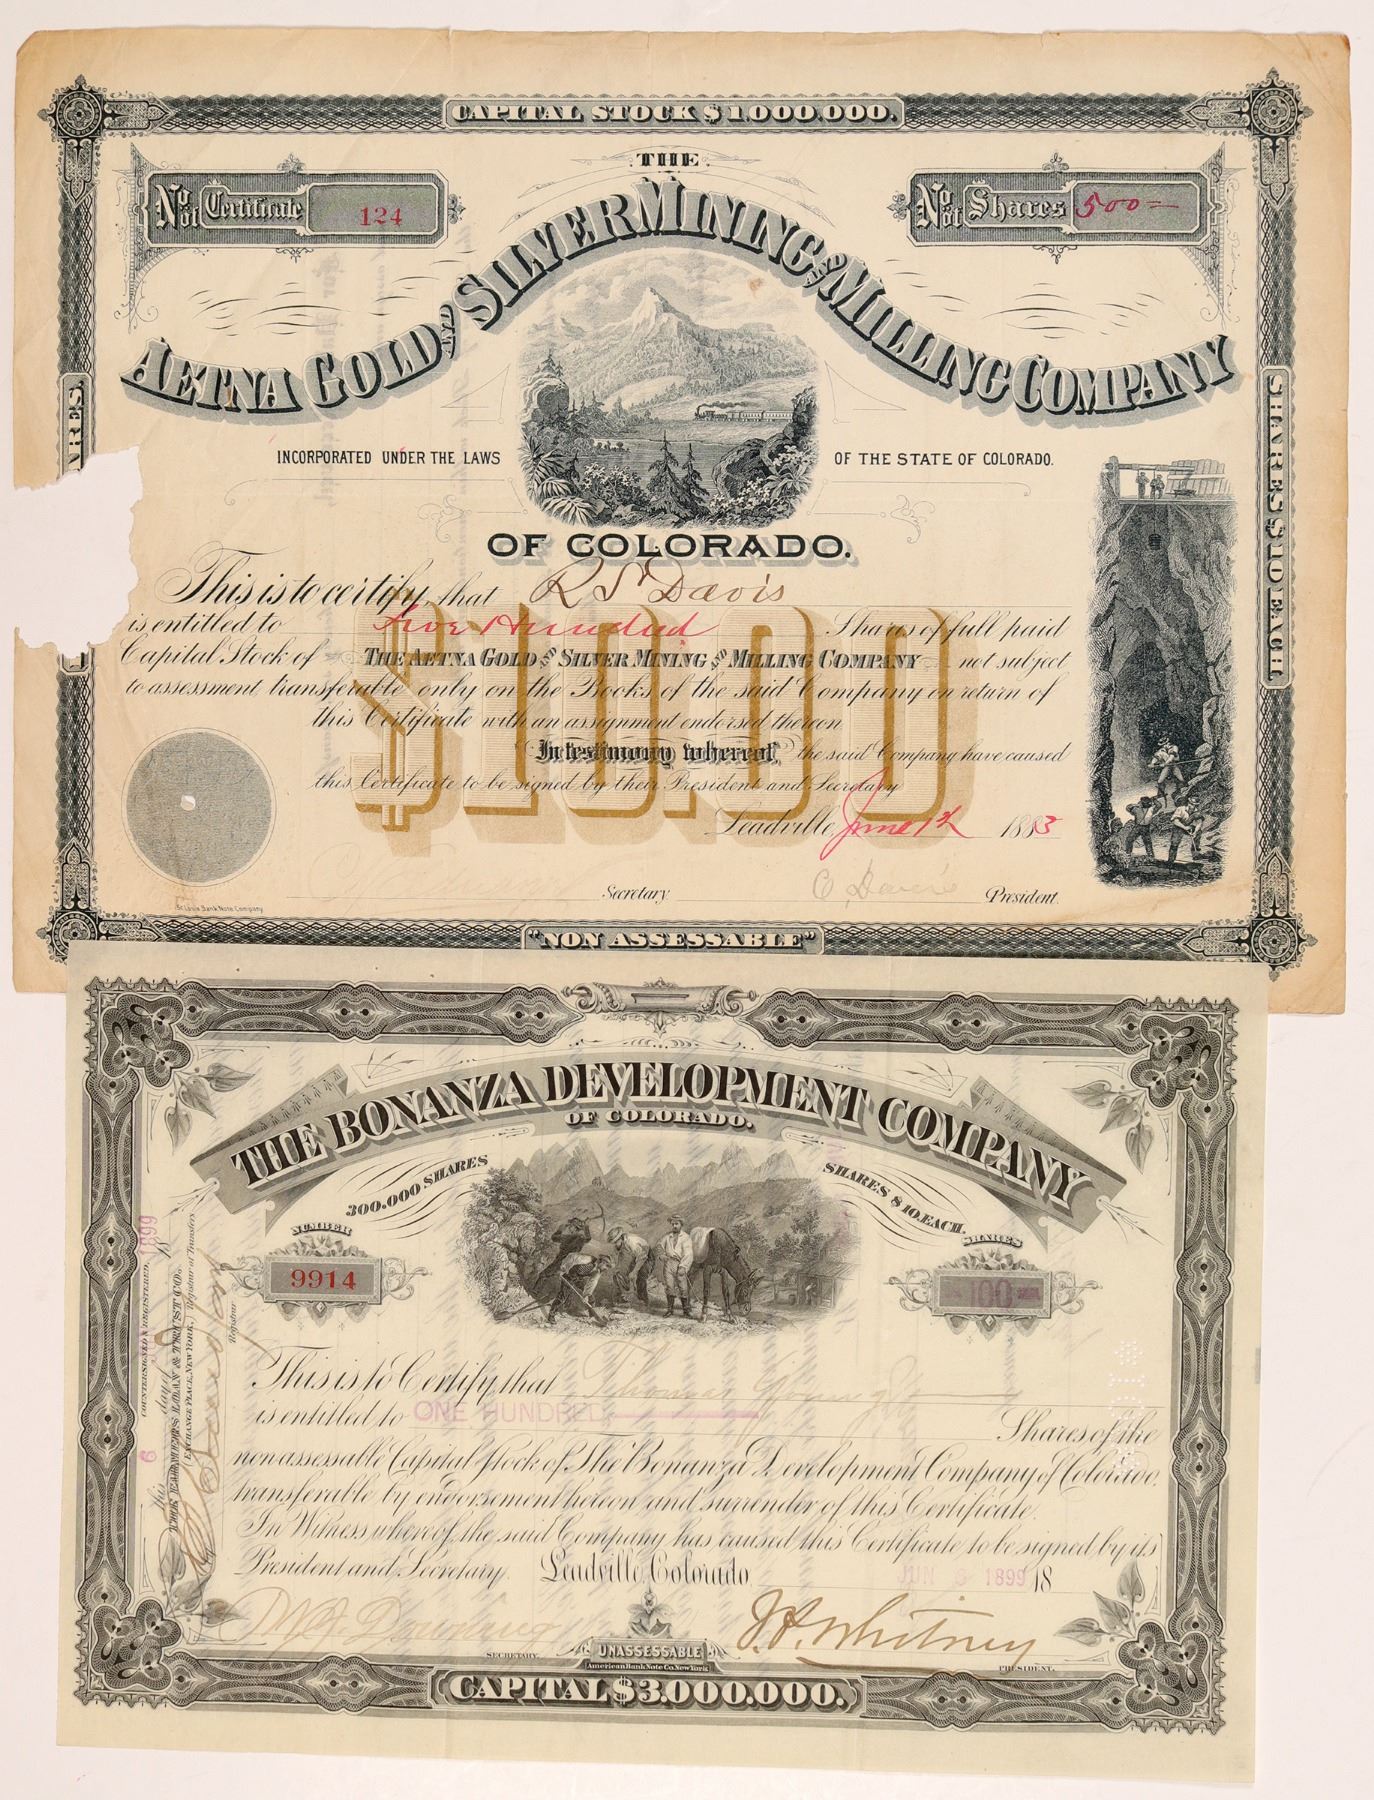 CAPITAL STOCK $1,000,000.
THE
No. of Certificate 124
No. of Shares 500=
AETNA GOLD AND SILVER MINING AND MILLING COMPANY
INCORPORATED UNDER THE LAWS OF THE STATE OF COLORADO.
OF COLORADO.
SHARES $10 EACH.
This is to certify, that R S Davis
is entitled to Five Hundred Shares of full paid
Capital Stock of THE AETNA GOLD AND SILVER MINING AND MILLING COMPANY not subject
to assessment, transferable only on the Books of the said Company on return of
this Certificate with an assignment endorsed thereon.
$10.00
In testimony whereof, the said Company have caused
this Certificate to be signed by their President and Secretary
Leadville, June 1st 1883
Secretary.
C. Davis
President.
St. Louis Bank Note Company
"NON ASSESSABLE"
THE BONANZA DEVELOPMENT COMPANY
OF COLORADO.
300.000 SHARES
SHARES $10.EACH.
NUMBER
9914
SHARES
100
COUNTERSIGNED & REGISTERED,
this 6 day of 1899
THE FARMERS LOAN & TRUST CO.
(EXCHANGE PLACE, NEW YORK,) Registrar of Transfers
Registrar
This is to Certify that Thomas Young Jr
is entitled to ONE HUNDRED Shares of the
nonassessable Capital Stock of The Bonanza Development Company of Colorado.
transferable by endorsement hereon and surrender of this Certificate.
In Witness whereof, the said Company has caused this Certificate to be signed by its
President and Secretary. Leadville, Colorado, JUN 6 1899 18
W. J. Downing
SECRETARY.
J. H. Whitney
PRESIDENT.
UNASSESSABLE
American Bank Note Co. New York
CAPITAL $3.000.000.